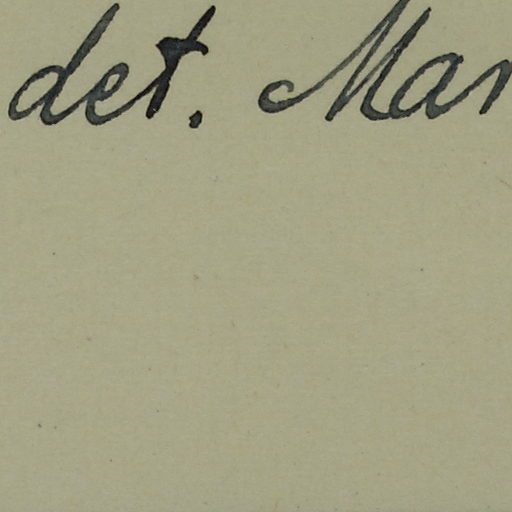 det. Mar